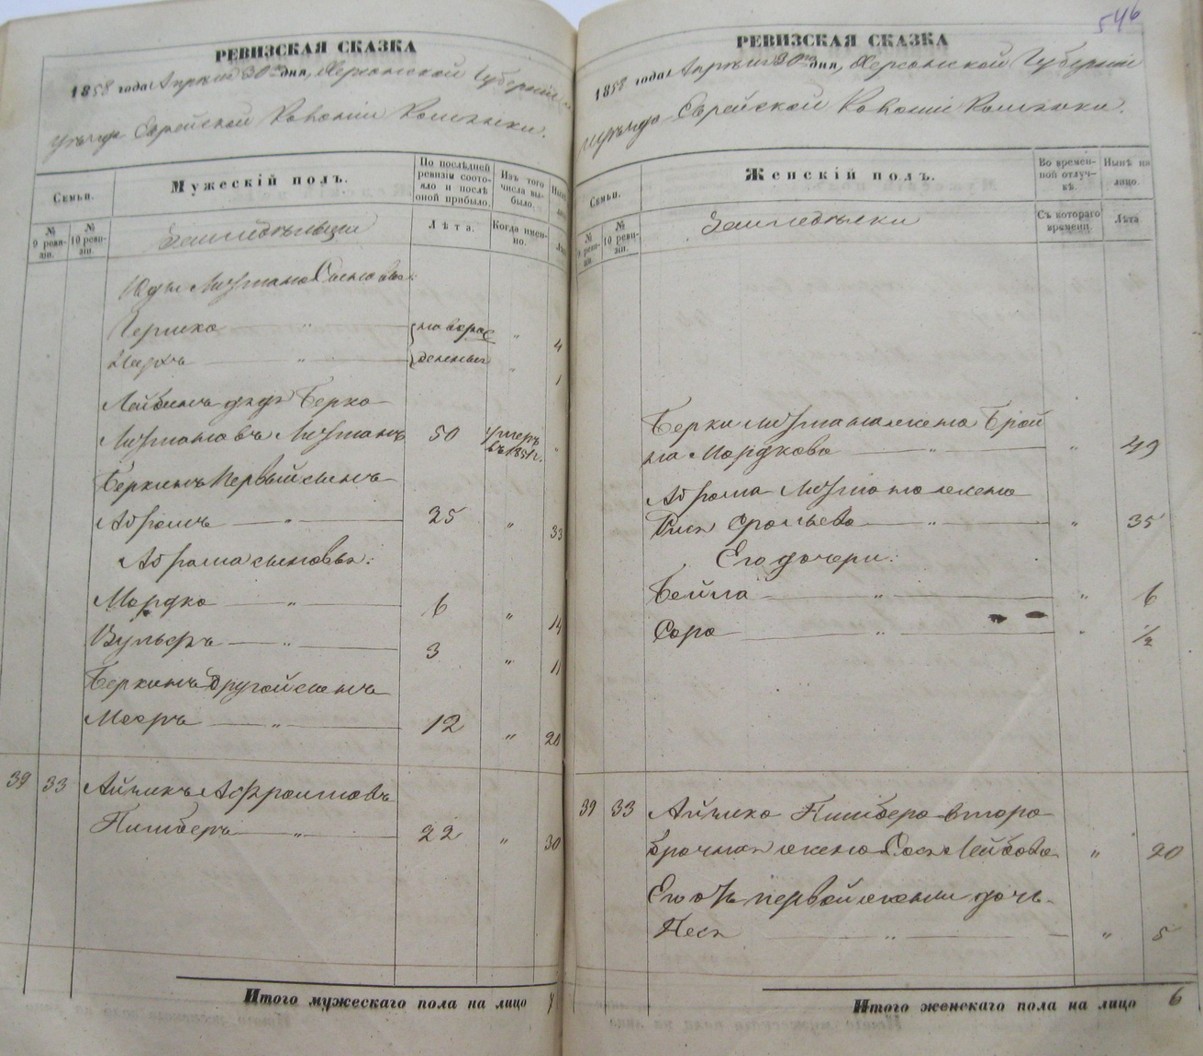 РЕВИЗСКАЯ СКАЗКА
1858 года Апреля 30го дня, Херсонской Губерніи
уѣзда Еврейской Колоніи
Семьи.
№ 9 ревизіи.
№ 10 ревизіи.
Мужескій полъ.
Земледѣльцы
По послѣдней ревизіи состояло и послѣ оной прибыло.
Лѣта.
Изъ того числа выбыло.
Когда именно.
Лизмана Сыновья:
Гершко " ново " 4
" рожденный " 1
дядя Берко
Лизмановъ Лизманъ 50 умеръ въ 1851 г. "
Беркинъ Первый сынъ
Абрамъ " 25 " 33
Абрама сыновья:
Мордко " 6 " 14
Вульфъ " 3 " 11
Беркинъ другой сынъ
Мееръ " 12 " 20
39 33 Айзикъ
" 22 " 30
Итого мужескаго пола на лицо 7
546
РЕВИЗСКАЯ СКАЗКА
1858 года Апреля 30го дня, Херсонской Губерніи
уѣзда Еврейской Колоніи
Семьи.
№ 9 ревизіи.
№ 10 ревизіи.
Женскій полъ.
Земледѣлки
Во временной отлучкѣ.
Съ котораго времени.
Нынѣ на лицо.
Лѣта
Берки Лизмана жена Брай
на Мордкова " " 49
Абрама Лизмана жена
" " 35
Его дочери:
Бейла " " 6
Сора " " ½
39 33 Айзика втора
брачная жена Лейбова " 20
Его отъ первой жены дочь
Песя " " 5
Итого женскаго пола на лицо 6